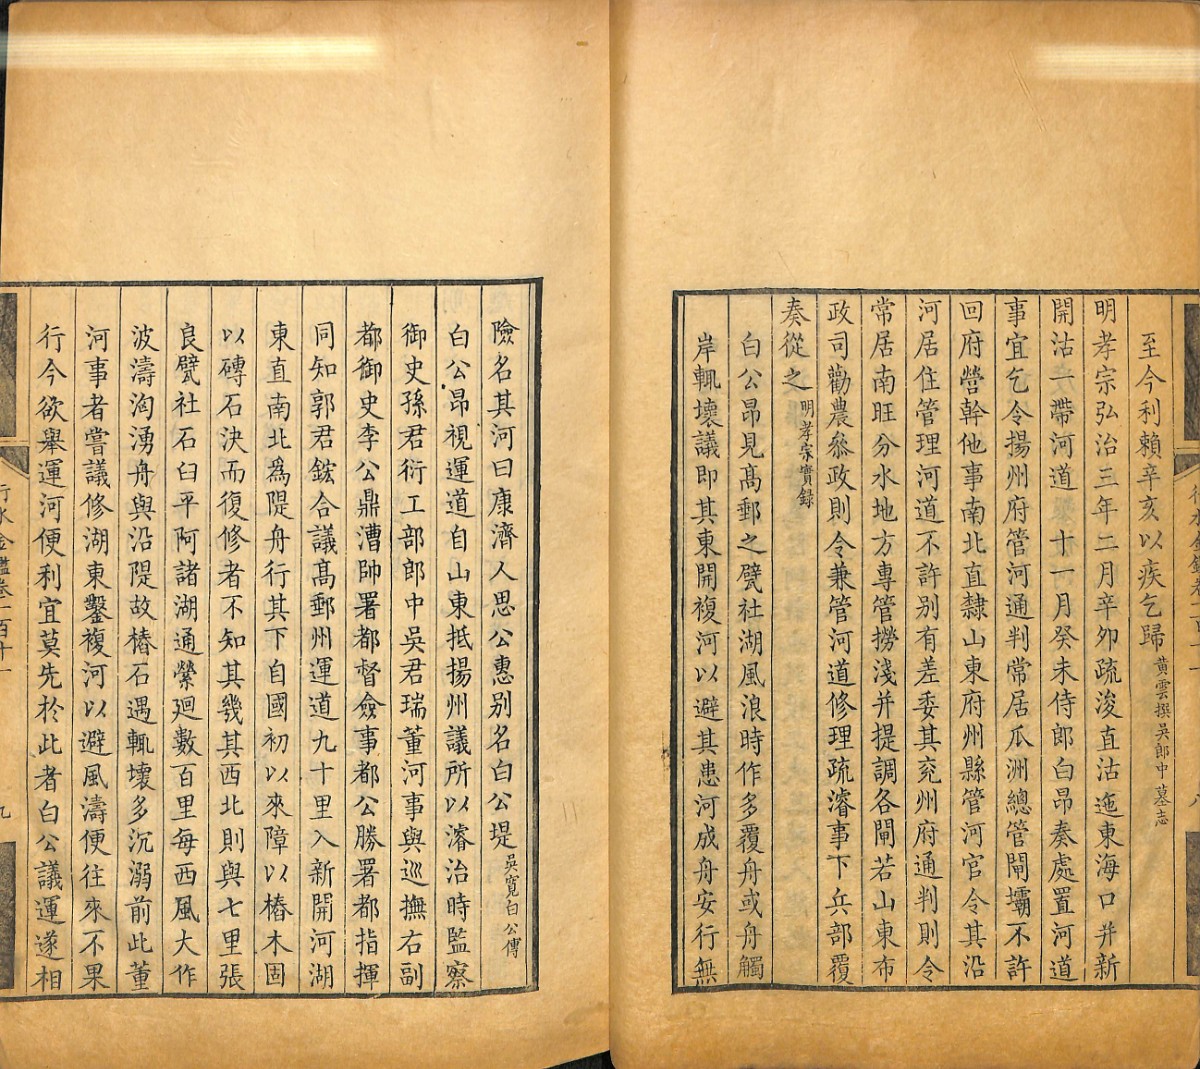 至今利賴辛亥以疾乞歸黃雲撰吳郎中墓志
明孝宗弘治三年二月辛卯疏浚直沽迤東海口并新
開沽一帶河道 十一月癸未侍郎白昂奏處置河道
事宜乞令揚州府管河通判常居瓜洲總管閘壩不許
回府營幹他事南北直隸山東府州縣管河官令其沿
河居住管理河道不許别有差委其兖州府通判則令
常居南旺分水地方專管撈淺并提調各閘若山東布
政司勸農叅政則令兼管河道修理疏濬事下兵部覆
奏從之明孝宗實録
白公昂見髙郵之甓社湖風浪時作多覆舟或舟觸
岸輒壞議即其東開複河以避其患河成舟安行無
險名其河曰康濟人思公惠别名白公堤吳寬白公傳
白公昂視運道自山東抵揚州議所以濬治時監察
御史孫君衍工部郎中吳君瑞董河事與巡撫右副
都御史李公鼎漕帥署都督僉事都公勝署都指揮
同知郭君鋐合議髙郵州運道九十里入新開河湖
東直南北為隄舟行其下自國初以來障以樁木固
以磚石決而復修者不知其幾其西北則與七里張
良甓社石臼平阿諸湖通縈廻數百里每西風大作
波濤洶湧舟與沿隄故樁石遇輒壞多沉溺前此董
河事者嘗議修湖東鑿複河以避風濤便往來不果
行今欲舉運河便利宜莫先於此者白公議運遂相
行水金鑑卷一百十一
九